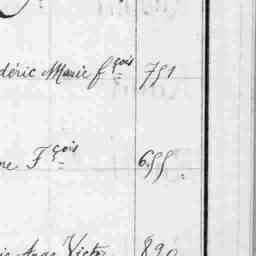 déric Marie fçois 751
ne Fçois 655
Victor 890